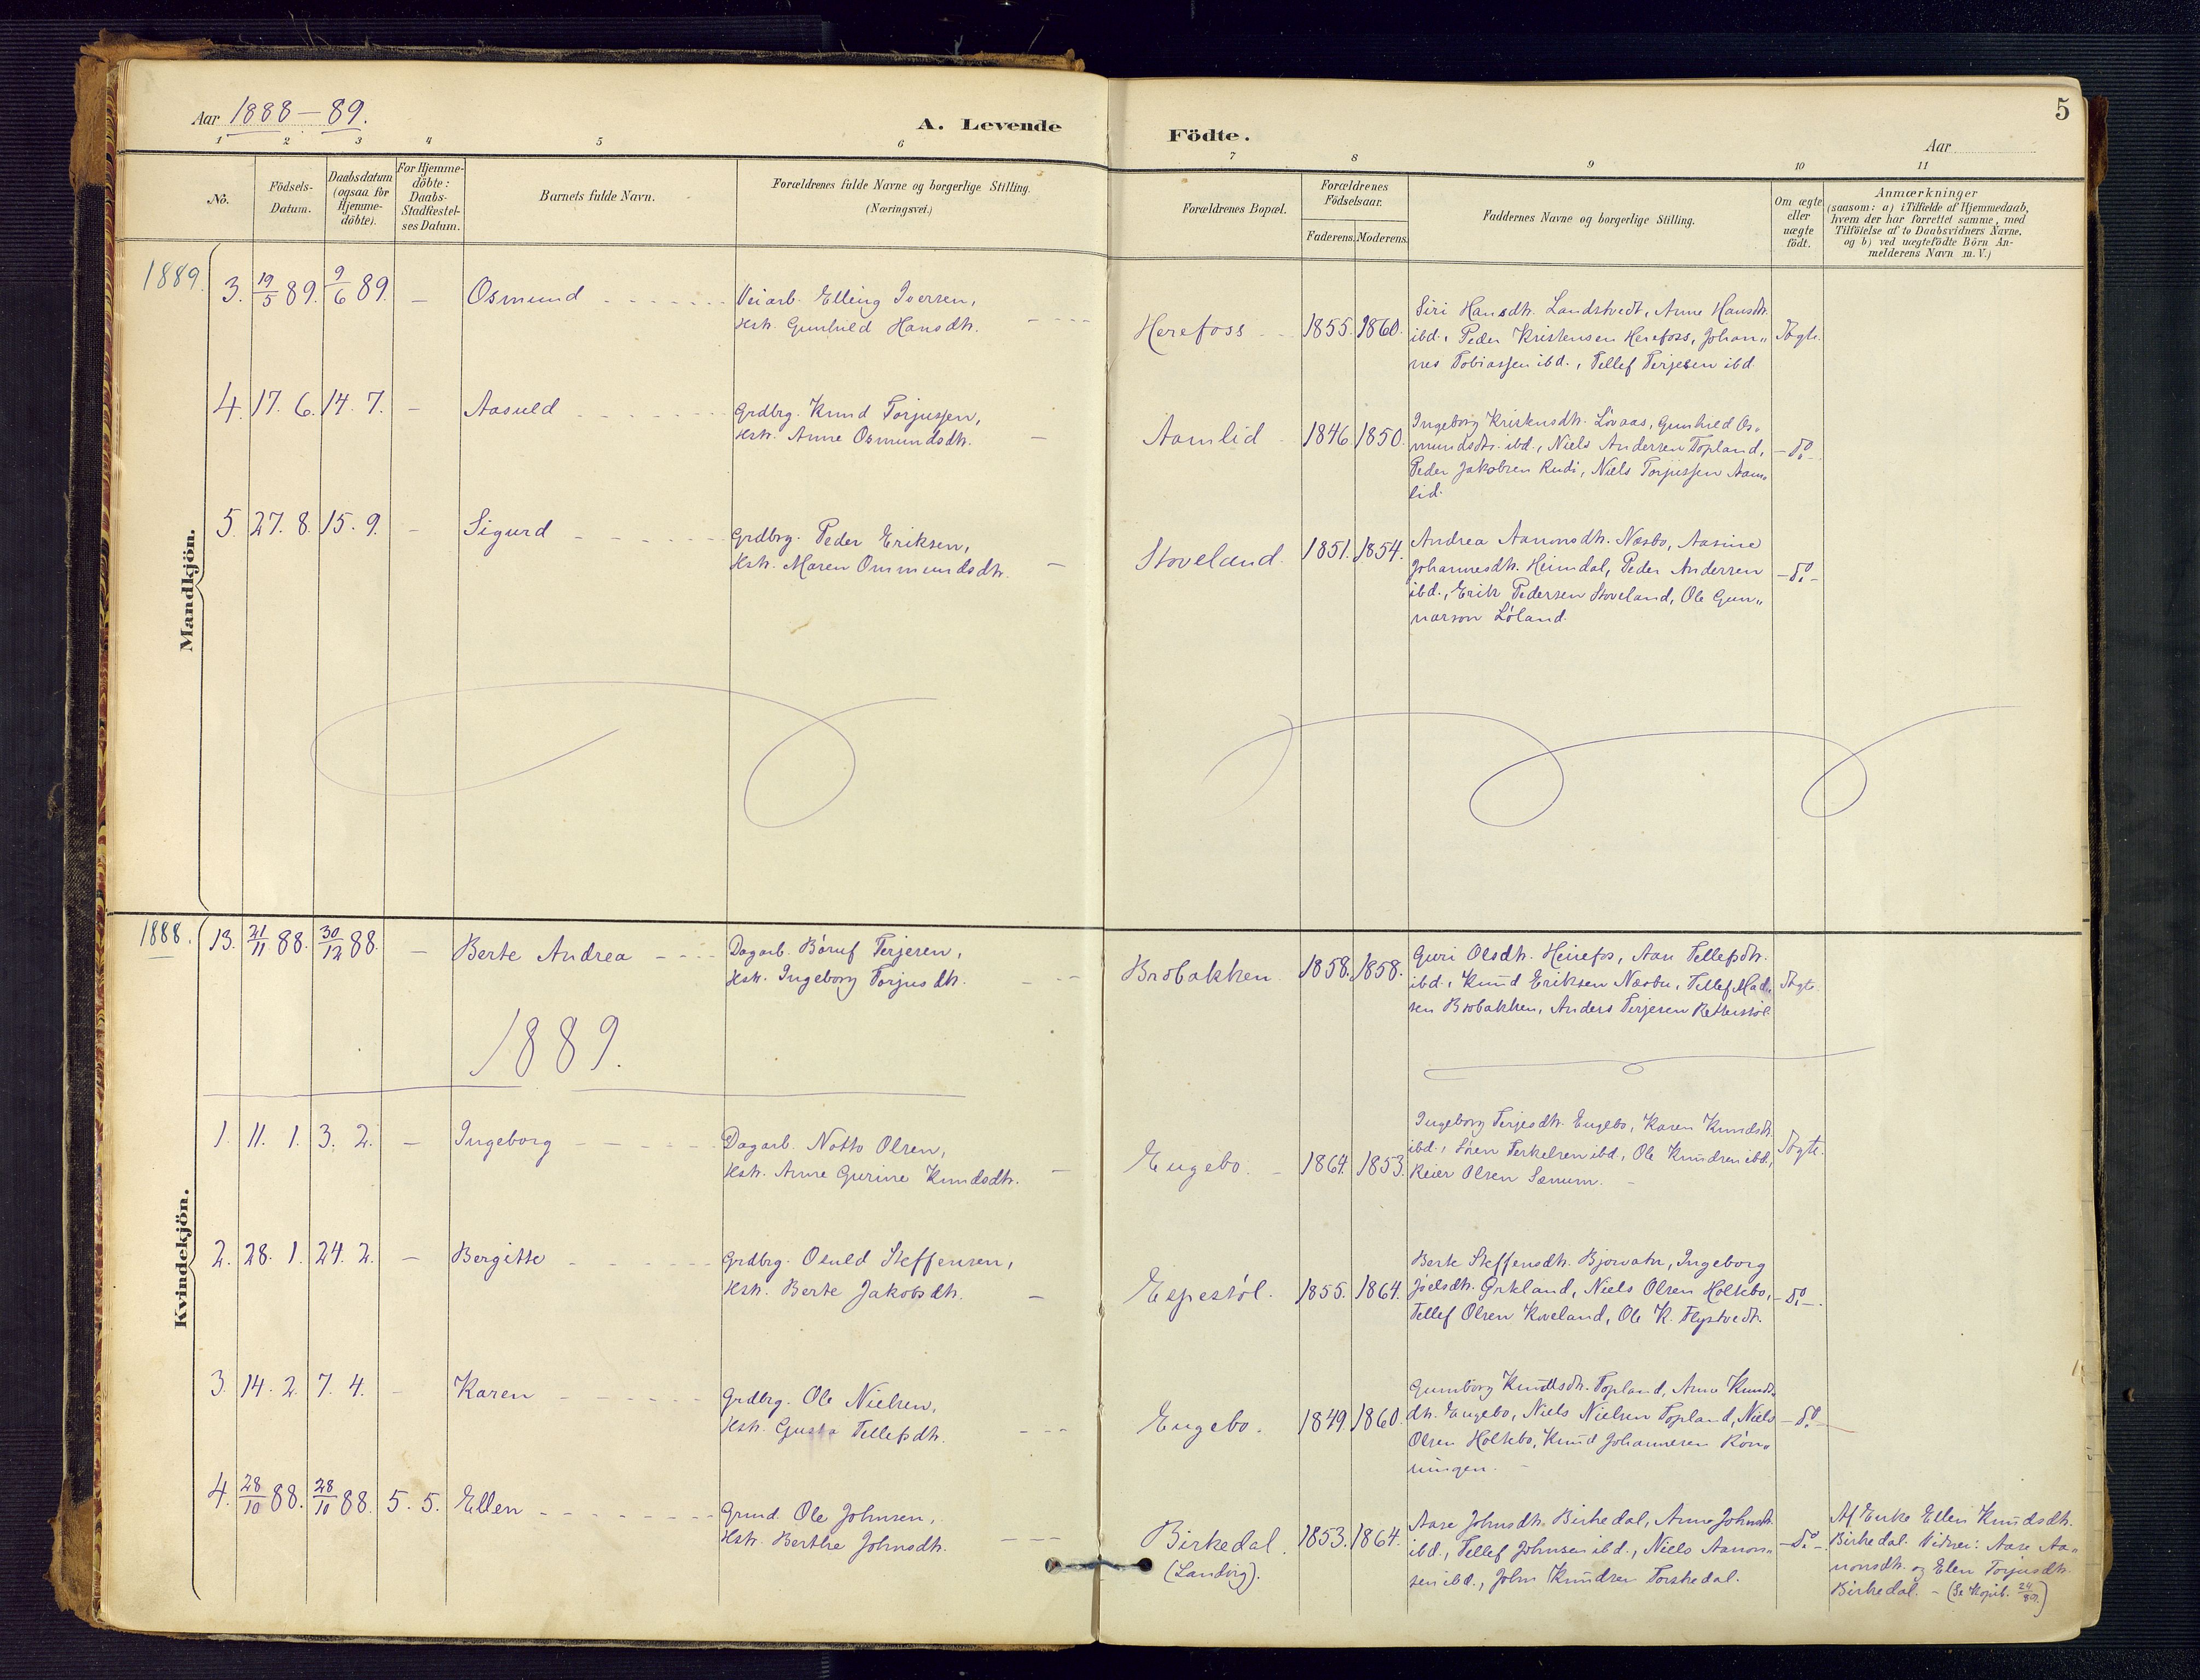 Aar 1888-89.
A. Levende
Födte.
Aar
5
1 2 3 4 5 6 7 8 9 10 11
No.
Födsels-
Datum.
Daabsdatum
(ogsaa for
Hjemme-
döbte).
For Hjemme-
döbte:
Daabs-
Stadfæstel-
ses Datum.
Barnets fulde Navn.
Forældrenes fulde Navne og borgerlige Stilling.
(Næringsvei.)
Forældrenes Bopæl.
Forældrenes
Födselsaar.
Faderens. Moderens.
Faddernes Navne og borgerlige Stilling.
Om ægte
eller
uægte
födt.
Anmærkninger
(saasom: a) i Tilfælde af Hjemmedaab,
hvem der har forrettet samme, med
Tilföielse af to Daabsvidners Navne.
og b) ved uægtefödte Börn An-
melderens Navn m. V.)
Mandkjön.
1889.
3. 19/5 89. 9/6 89. - Osmund
Veiarb. Elling Iversen,
Hstr. Gunhild Hansdtr.
Herefoss 1855. 1860.
Siri Hansdtr. Landstvedt, Anne Hansdtr.
ibd., Peder Kristensen Herefoss, Johan„
nes Tobiassen ibd., Tellef Terjesen ibd.
Ægte.
4. 17. 6. 14. 7. - Aasuld
Grdbrg. Knud Torjussen,
Hstr. Anne Osmundsdtr.
Aamlid 1846. 1850.
Ingeborg Kristensdtr. Lövaas, Gunhild Os„
mundsdtr. ibd., Niels Andersen Topland,
Peder Jakobsen Rudi, Niels Torjussen Aam„
lid.
- do -
5. 27. 8. 15. 9. - Sigurd
Grdbrg. Peder Eriksen,
Hstr. Maren Ommundsdtr.
Stoveland. 1851. 1854.
Andrea Aanonsdtr. Næsbo, Aasine
Johannesdtr. Heimdal, Peder Andersen
ibd., Erik Pedersen Stoveland, Ole Gun„
narson Löland.
- do -
Kvindekjön.
1888.
13. 21/11 88. 30/12 88. - Berte Andrea
Dagarb. Böruf Terjesen,
Hstr. Ingeborg Torjusdtr.
Brobakken. 1858. 1858.
Guri Olsdtr. Heirefos, Aan Tellefsdtr.
ibd., Knud Eriksen Næsbu, Tellef Mad„
sen Brobakken, Anders Terjesen
Ægte.
1889.
1. 11. 1. 3. 2. - Ingeborg
Dagarb. Notto Olsen,
Hstr. Anne Gurine Knudsdtr.
Engebo. 1864. 1853.
Ingeborg Terjesdtr. Engebo, Karen Knudsdtr.
ibd., Sören Terkelsen ibd., Ole Knudsen ibd.,
Reier Olsen Sænum.
Ægte.
2. 28. 1. 24. 2. - Bergitte
Grdbrg. Osuld Steffensen,
Hstr. Berte Jakobsdtr.
Espestöl. 1855. 1864.
Berte Steffensdtr. Bjorvatn, Ingeborg
Joelsdtr. Birkland, Niels Olsen Holtebo,
Tellef Olsen Koveland, Ole K. Flystvedt.
- do -
3. 14. 2. 7. 4. - Karen
Grdbrg. Ole Nielsen,
Hstr. Gusta Tellefsdtr.
Engebo. 1849. 1860.
Gunborg Knudsdtr. Topland, Anne Knuds„
dtr. Engebo, Niels Nielsen Topland, Niels
Olsen Holtebo, Knud Johannesen Rön„
ningen.
- do -
4. 28/10 88. 28/10 88. 5. 5. Ellen
Grmd. Ole Johnsen,
Hstr. Berthe Johnsdtr.
Birkedal.
(Landvig).
1853. 1864.
Aase Johnsdtr. Birkedal, Anne Johnsdtr.
ibd., Tellef Johnsen ibd., Niels Aanon„
sen ibd., John Knudsen Torskedal.
- do -
Af Enke Ellen Knudsdtr.
Birkedal. Vidner: Aase Aa„
nonsdtr. og Elen Torjusdtr.
Birkedal. - (Se Kopib. 24/89.)